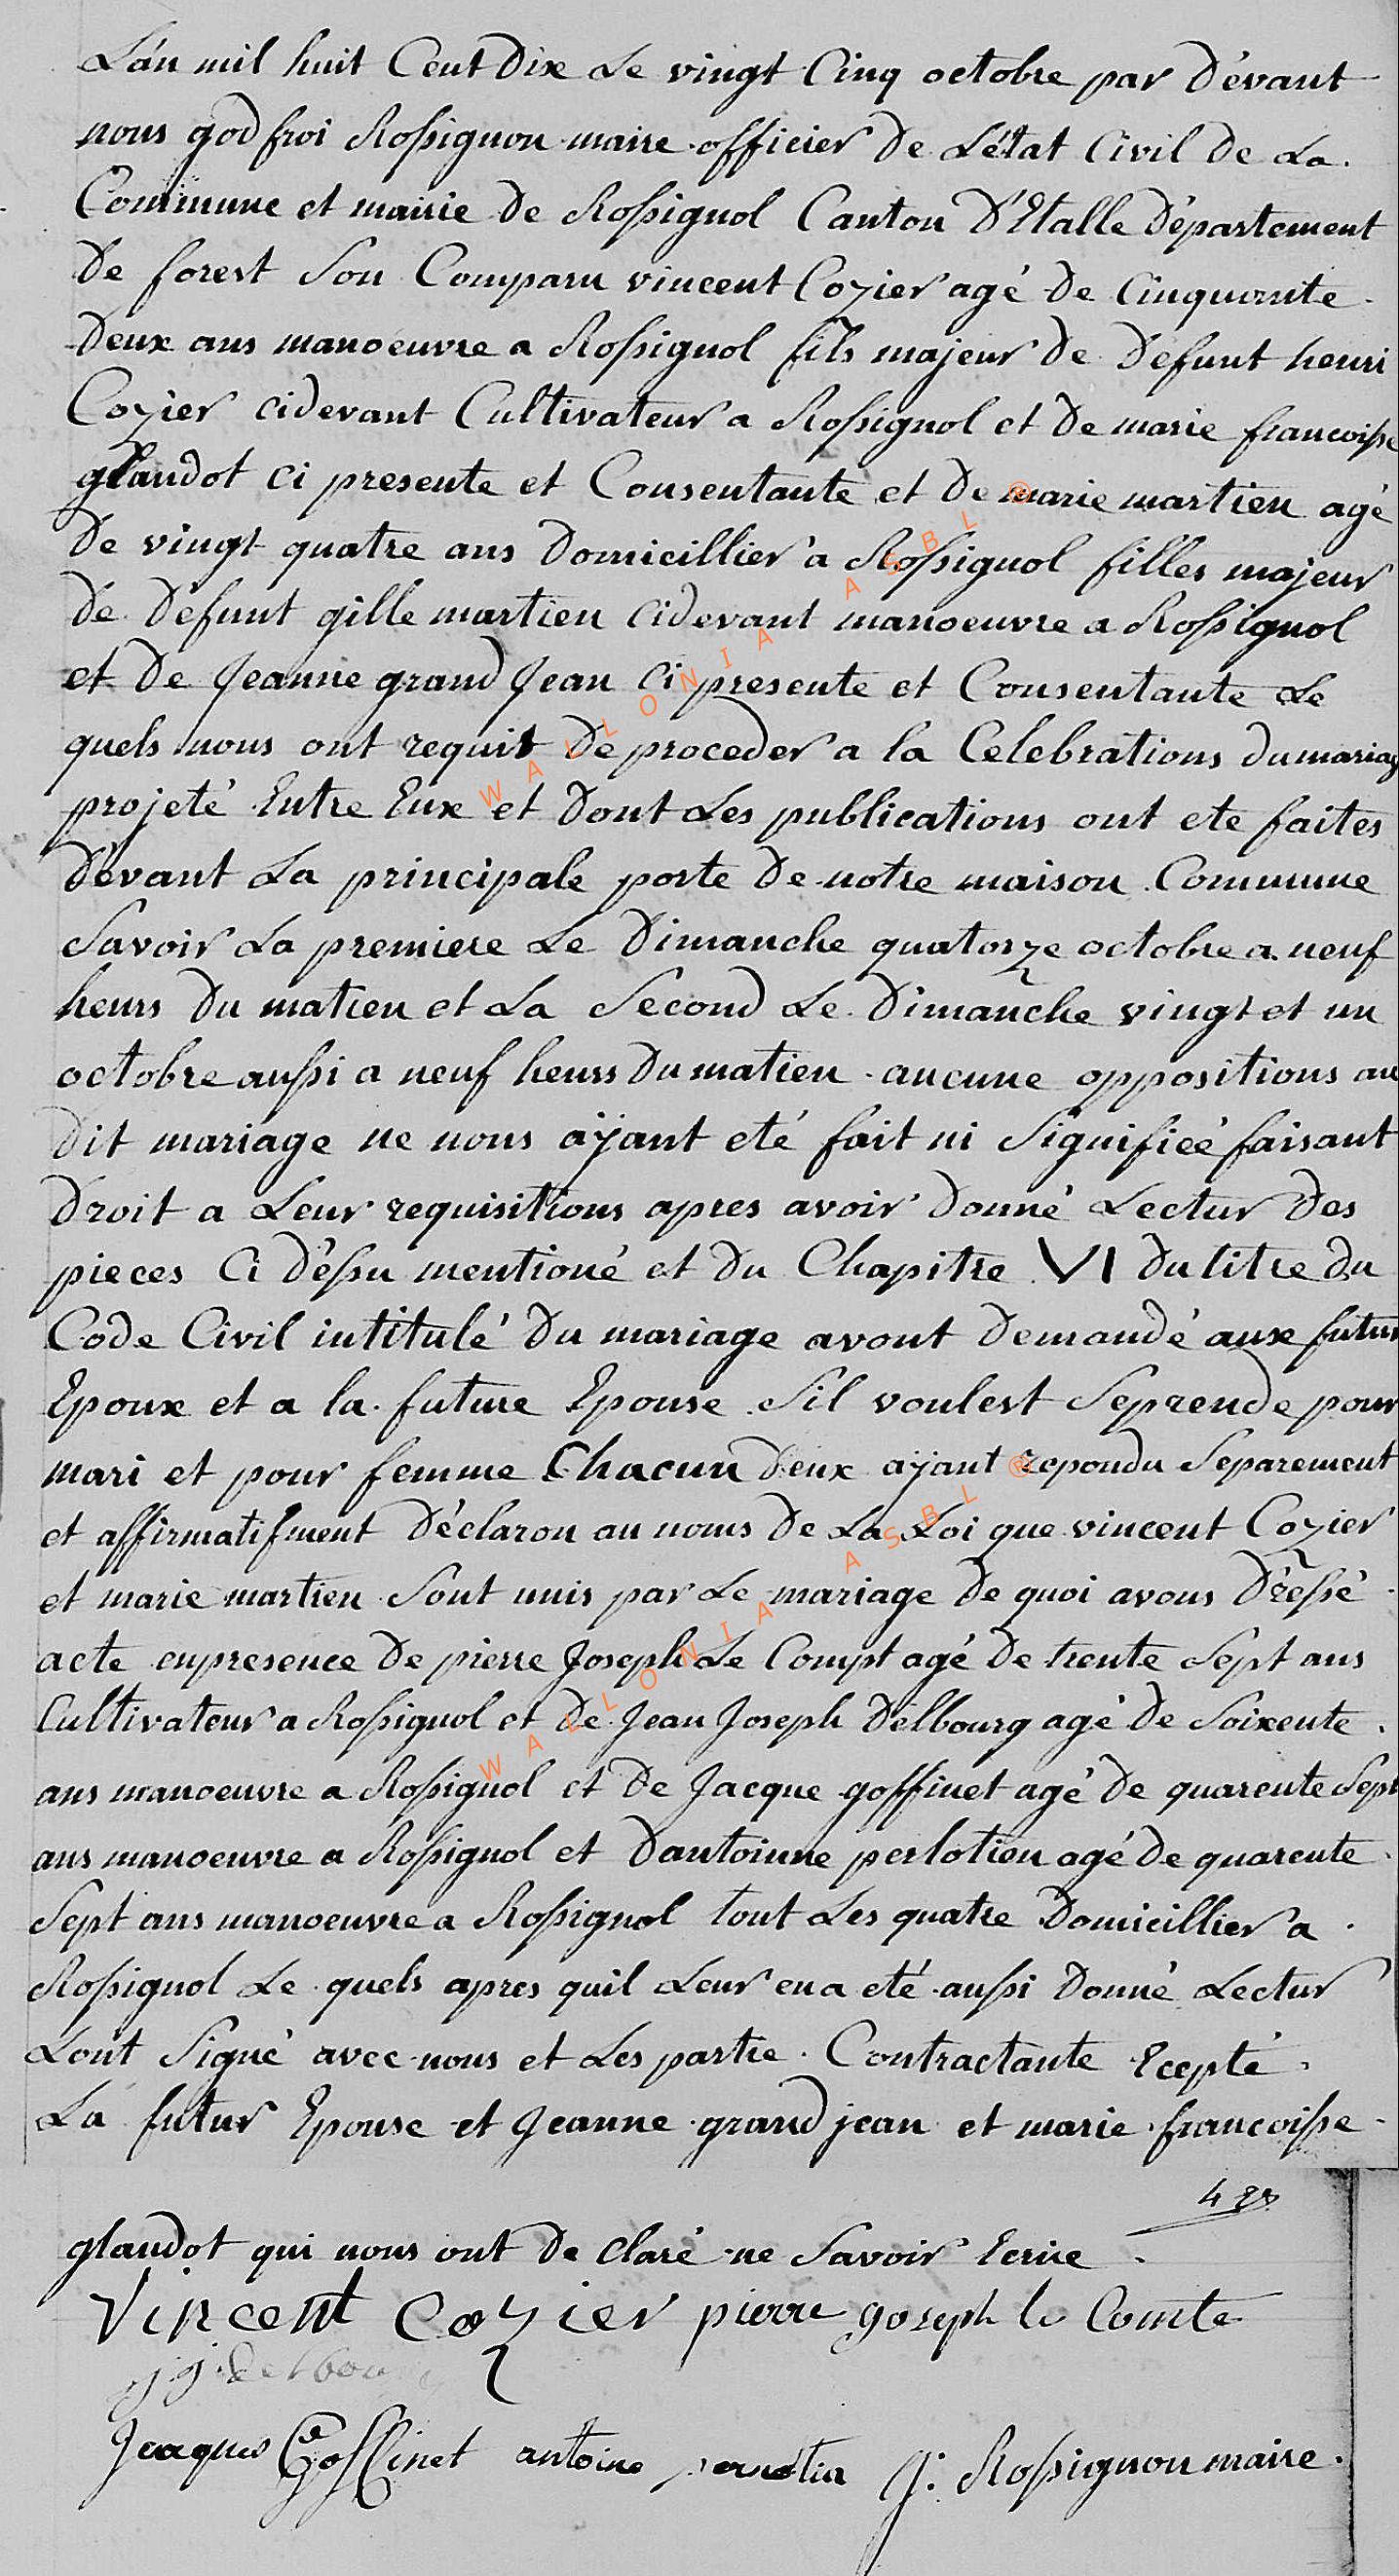 L'án mil huit Cent Dix Le vingt Cinq octobre par Dévant
nous godfroi Rossignon maire officier De L'état Civil De La
Commune et mairie De Rossignol Canton D'Etalle Département
De forest Son Comparu vincent Cozier agé De Cinquante
Deux ans manoeuvre a Rossignol fils majeur De Défunt henri
Cozier cidevant Cultivateur a Rossignol et De marie francoisse
glaudot ci presente et Consentante et De marie martien agé
De vingt quatre ans Domicillier a Rossignol filles majeur
De Défunt gille martien cidevant manoeuvre a Rossignol
et De Jeanne grand Jean ci presente et Consentante Le
quels nous ont requit De proceder a la Celebrations Du mariag
projeté Entre Eux et Dont Les publications ont ete faites
Dévant La principale porte De notre maison Commune
Savoir La premiere Le Dimanche quatorze octobre a neuf
heurs Du matien et La Second Le Dimanche vingt et un
octobre aussi a neuf heurs Du matien aucune oppositions au
Dit mariage ne nous aÿant eté fait ni Signifieé faisant
Droit a Leur requisitions apres avoir Donné Lectur Des
pieces Ci Déssu mentioné et Du Chapitre VI Du titre Du
Code Civil intitulé Du mariage avont Demandé aux futur
Epoux et a la future Epouse Sil voulest Seprende pour
mari et pour femme Chacun Deux aÿant repondu Separement
et affirmatifment Déclaron au noms De La Loi que vincent Cozier
et marie martien Sont unis par Le mariage De quoi avons Dréssé
acte enpresence De pierre Joseph Le Compt agé De trente Sept ans
Cultivateur a Rossignol et De Jean Joseph Délbourg agé De Soixente
ans manoeuvre a Rossignol et De Jacque goffinet agé De quarente Sept
ans manoeuvre a Rossignol et Dantoinne perlotien agé De quarente
Sept ans manoeuvre a Rossignol tout Les quatre Domicillier a
Rossignol Le quels apres quil Leur en a eté aussi Donné Lectur
Lont Signé avec nous et Les partie Contractante Ecepté
La futur Epouse et Jeanne grand jean et marie francoisse
glaudot qui nous ont De claré ne Savoir Ecrire
Vincent Cozier pierre Joseph le Comte
Jacques Goffinet antoine G: Rossignon maire.
WALLONIA ASBL ®
WALLONIA ASBL ®